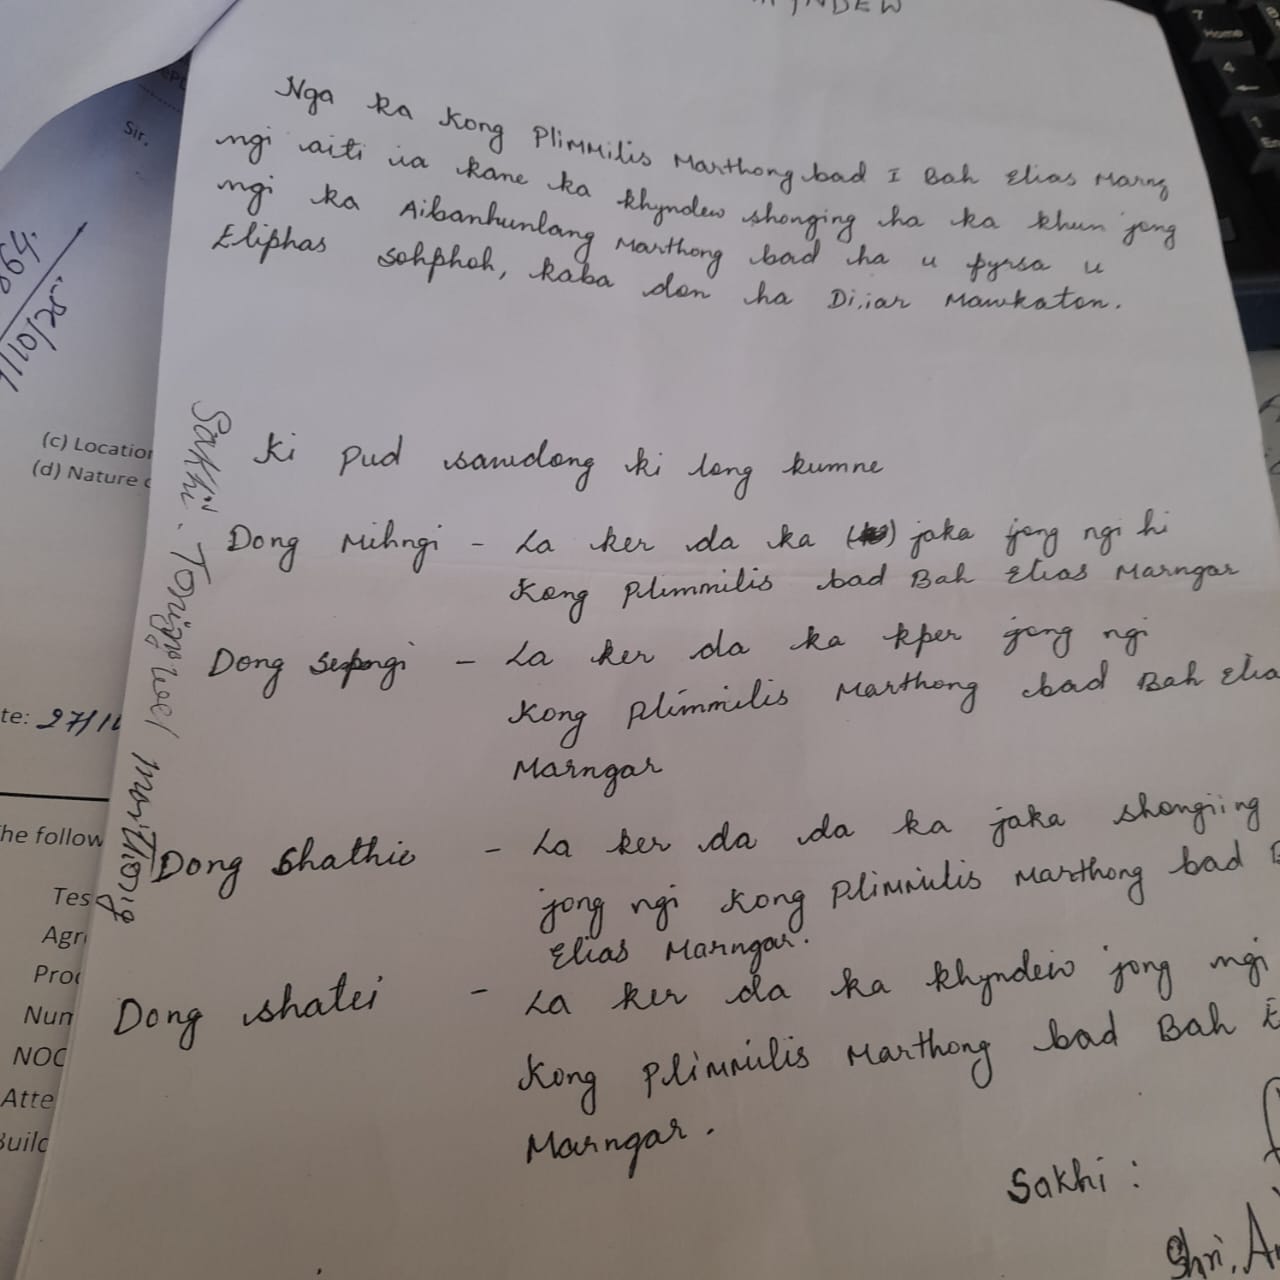 YNDEW
Nga ka Kong Plimmilis Marthong bad I Bah Elias Marng
ngi aiti ia kane ka khyndew shonging ha ka khun jong
ngi ka Aibanhunlang Marthong bad ha u pyrsa u
Eliphas Sohphoh, kaba don ha Diiar Mawkaton.
Ki pud sawdong ki long kumne
Dong Mihngi - La ker da ka jaka jong ngi hi
Kong Plimmilis bad Bah Elias Marngar
Dong Sepngi - La ker da ka kper jong ngi
Kong Plimmilis Marthong bad Bah Elia
Marngar
Dong Shathie - La ker da da ka jaka shongiing
jong ngi Kong Plimmilis Marthong bad B
Elias Marngar.
Dong shatei - La ker da ka khyndew jong ngi
Kong Plimmilis Marthong bad Bah E
Marngar.
Sakhi :
Shri. A
Sakhi. Marthong
Sir.
864.
/10/25
(c) Location
(d) Nature
te: 27/1
he follow
Tes
Agr
Pro
Num
NOC
Atte
Build
7
Home
4
1